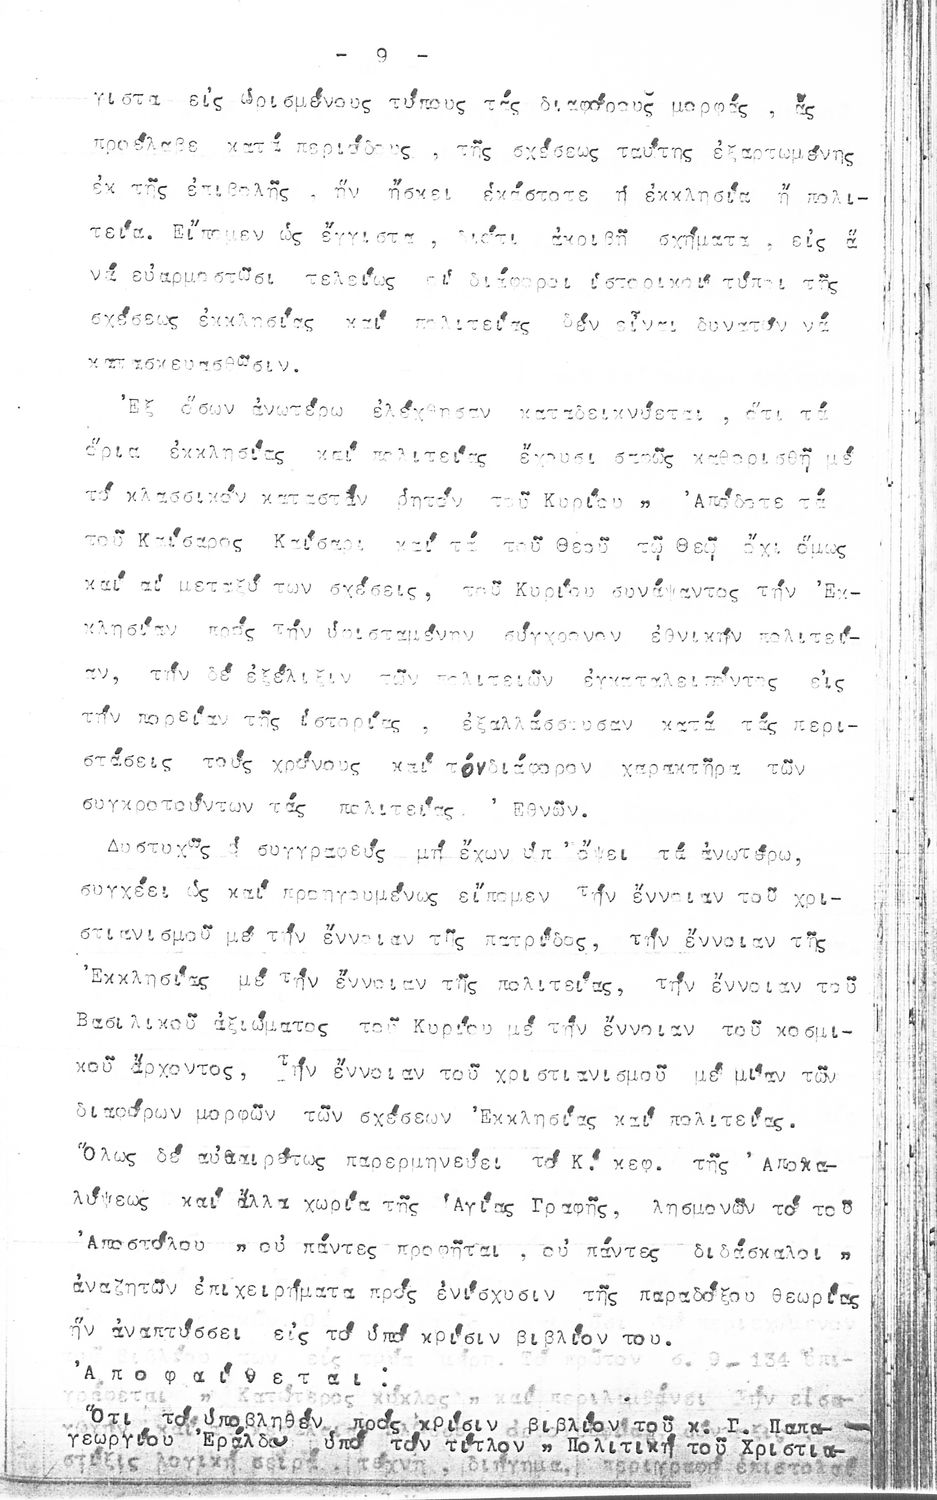 - 9 -
γιστα εἰς ὡρισμένους τύπους τάς διαφόρους μορφάς , ἅς
προέλαβε κατά περιόδους , τῆς σχέσεως ταύτης ἐξαρτωμένης
ἐκ τῆς ἐπιβολῆς , ἥν ἤσκει ἑκάστοτε ἡ ἐκκλησία ἤ πολι-
τεία. Εἴπομεν ὡς ἔγγιστα , διότι ἀκριβῆ σχήματα , εἰς ἅ
νά εὐαρμοστῶσι τελείως οἱ διάφοροι ἱστορικοί τύποι τῆς
σχέσεως ἐκκλησίας καί πολιτείας δέν εἶναι δυνατόν νά
κατασκευασθῶσιν.
Ἐξ ὅσων ἀνωτέρω ἐλέχθησαν καταδεικνύεται , ὅτι τά
ὅρια ἐκκλησίας καί πολιτείας ἔχουσι σαφῶς καθορισθῆ μέ
τό κλασσικόν καταστάν ρητόν τοῦ Κυρίου " Ἀπόδοτε τά
τοῦ Καίσαρος Καίσαρι καί τά τοῦ Θεοῦ τῷ Θεῷ ὄχι ὅμως
καί αἱ μεταξύ των σχέσεις, τοῦ Κυρίου συνάψαντος τήν Ἐκ-
κλησίαν πρός τήν ὑφισταμένην σύγχρονον ἐθνικήν πολιτεί-
αν, τήν δέ ἐξέλιξιν τῶν πολιτειῶν ἐγκαταλειπόντος εἰς
τήν πορείαν τῆς ἱστορίας , ἐξαλλάσσουσαν κατά τάς περι-
στάσεις τούς χρόνους καί τόνδιάφορον χαρακτῆρα τῶν
συγκροτούντων τάς πολιτείας. ' Εθνῶν.
Δυστυχῶς ὁ συγγραφεύς μή ἔχων ὑπ 'ὄψει τά ἀνωτέρω,
συγχέει ὡς καί προηγουμένως εἴπομεν τήν ἔννοιαν τοῦ χρι-
στιανισμοῦ μέ τήν ἔννοιαν τῆς πατρίδος, τήν ἔννοιαν τῆς
Ἐκκλησίας μέ τήν ἔννοιαν τῆς πολιτείας, τήν ἔννοιαν τοῦ
Βασιλικοῦ ἀξιώματος τοῦ Κυρίου μέ τήν ἔννοιαν τοῦ κοσμι-
κοῦ ἄρχοντος, Τήν ἔννοιαν τοῦ χριστιανισμοῦ μέ μίαν τῶν
διαφόρων μορφῶν τῶν σχέσεων Ἐκκλησίας καί πολιτείας.
Ὅλως δέ αὐθαιρέτως παρερμηνεύει τό Κ. κεφ. τῆς ' Αποκα-
λύψεως καί ἄλλα χωρία τῆς Ἁγίας Γραφῆς, λησμονῶν τό τοῦ
Ἀποστόλου " οὐ πάντες προφῆται , οὐ πάντες διδάσκαλοι "
ἀναζητῶν ἐπιχειρήματα πρός ἐνίσχυσιν τῆς παραδόξου θεωρίας
ἥν ἀναπτύσσει εἰς τό ὑπό κρίσιν βιβλίον του.
Ἀ π ο φ α ί ν ε τ α ι :
Ὅτι τό ὑποβληθέν πρός κρίσιν βιβλίον τοῦ κ. Γ. Παπα-
γεωργίου Ἐράλδυ ὑπό τόν τίτλον " Πολιτική τοῦ Χριστια-